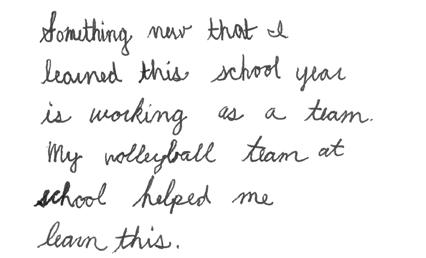 Something new that I
learned this school year
is working as a team.
My volleyball team at
school helped me
learn this.